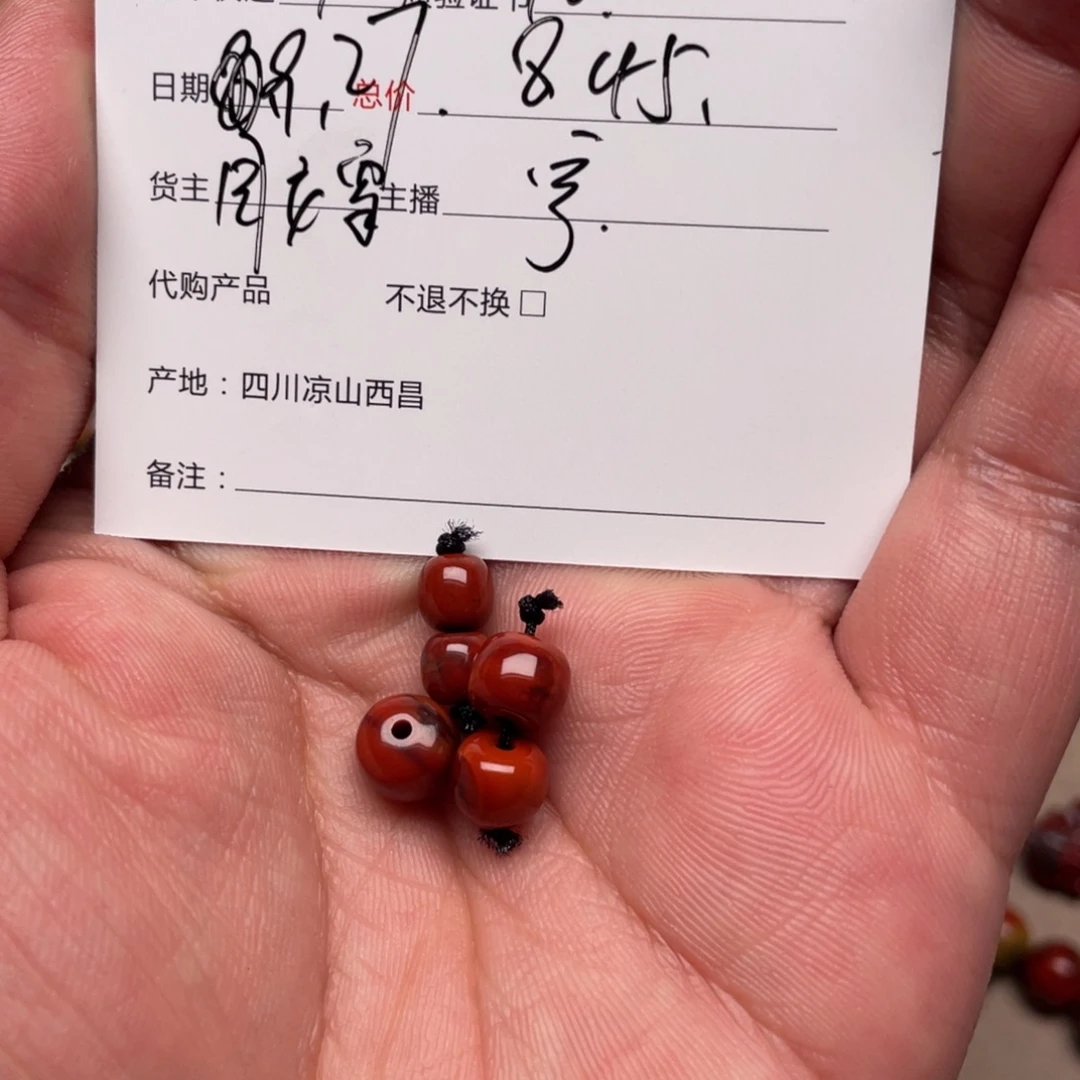 验证书
日期 09.27. 总价 845.
货主 主播
代购产品 不退不换 □
产地：四川凉山西昌
备注：